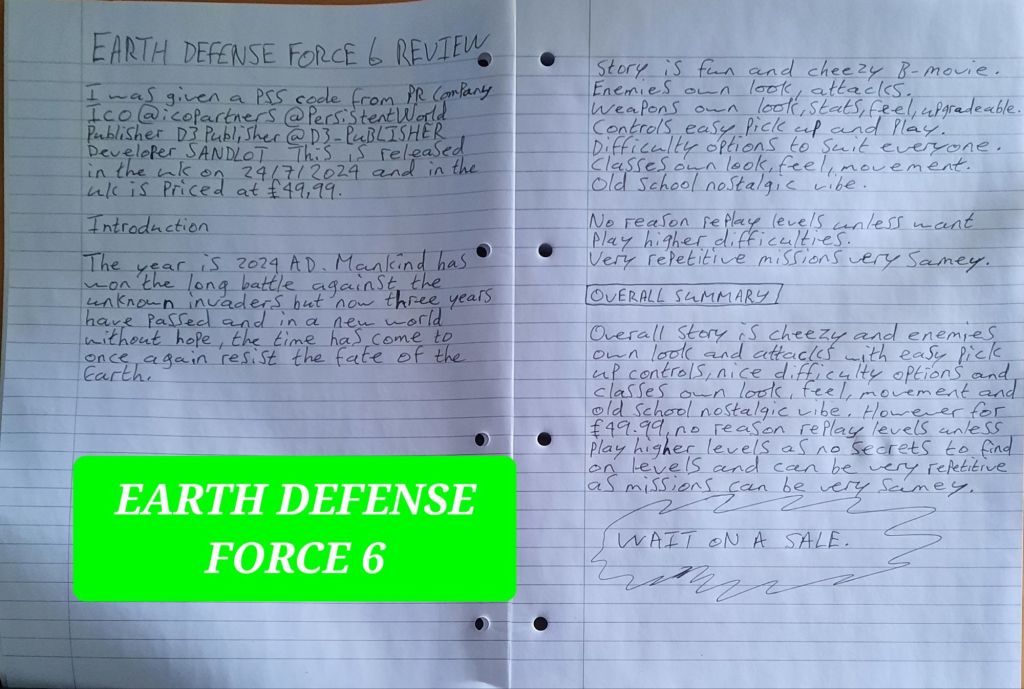 EARTH DEFENSE FORCE 6 REVIEW
I was given a PS5 code from PR Company
Ico @icopartners @PersistentWorld
Publisher D3Publisher @D3_PUBLISHER
Developer SANDLOT This is released
in the uk on 24/7/2024 and in the
uk is Priced at £49,99.
Introduction
The year is 2024 AD. Mankind has
won the long battle against the
unknown invaders but now three years
have passed and in a new world
without hope, the time has come to
once again resist the fate of the
Earth.
EARTH DEFENSE
FORCE 6
Story is fun and cheezy B-movie.
Enemies own look, attacks.
Weapons own look, stats, feel, upgradeable.
Controls easy pick up and play.
Difficulty options to suit everyone.
Classes own look, feel, movement.
Old School nostalgic vibe.
No reason replay levels unless want
play higher difficulties.
Very repetitive missions very samey.
OVERALL SUMMARY
Overall story is cheezy and enemies
own look and attacks with easy pick
up controls, nice difficulty options and
classes own look, feel, movement and
old school nostalgic vibe. However for
£49.99, no reason replay levels unless
play higher levels as no secrets to find
on levels and can be very repetitive
as missions can be very samey.
WAIT ON A SALE.